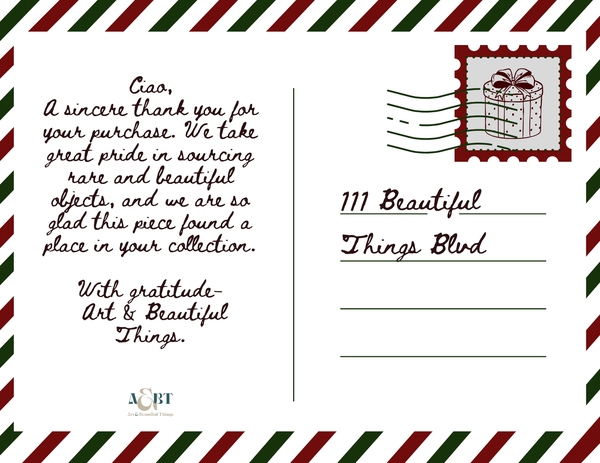 Ciao,
A sincere thank you for
your purchase. We take
great pride in sourcing
rare and beautiful
objects, and we are so
glad this piece found a
place in your collection.
With gratitude-
Art & Beautiful
Things.
A&BT
Art & Beautiful Things
111 Beautiful
Things Blvd